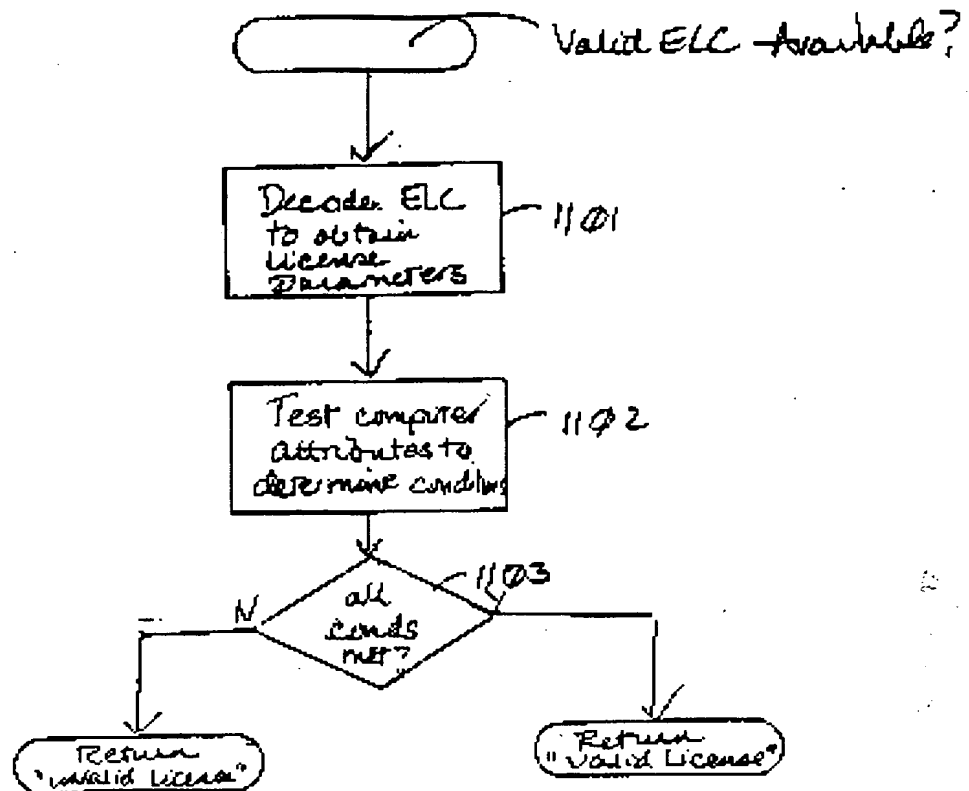 Valid ELC Available?
Decoder ELC
to obtain
License
Parameters
1101
Test computer
attributes to
determine conditions
1102
1103
all
conds
met?
N
Return
"invalid License"
Return
"valid License"